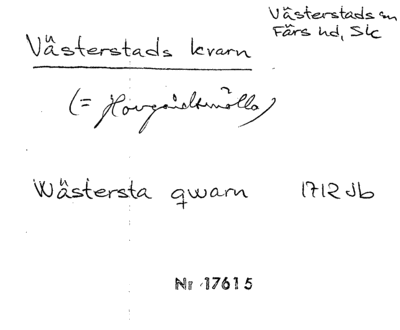 Västerstads sn
Färs hd, Sk
Västerstads kvarn
(= Hovgårdsmölla)
Wästersta qwarn 1712 Jb
Nr 17615